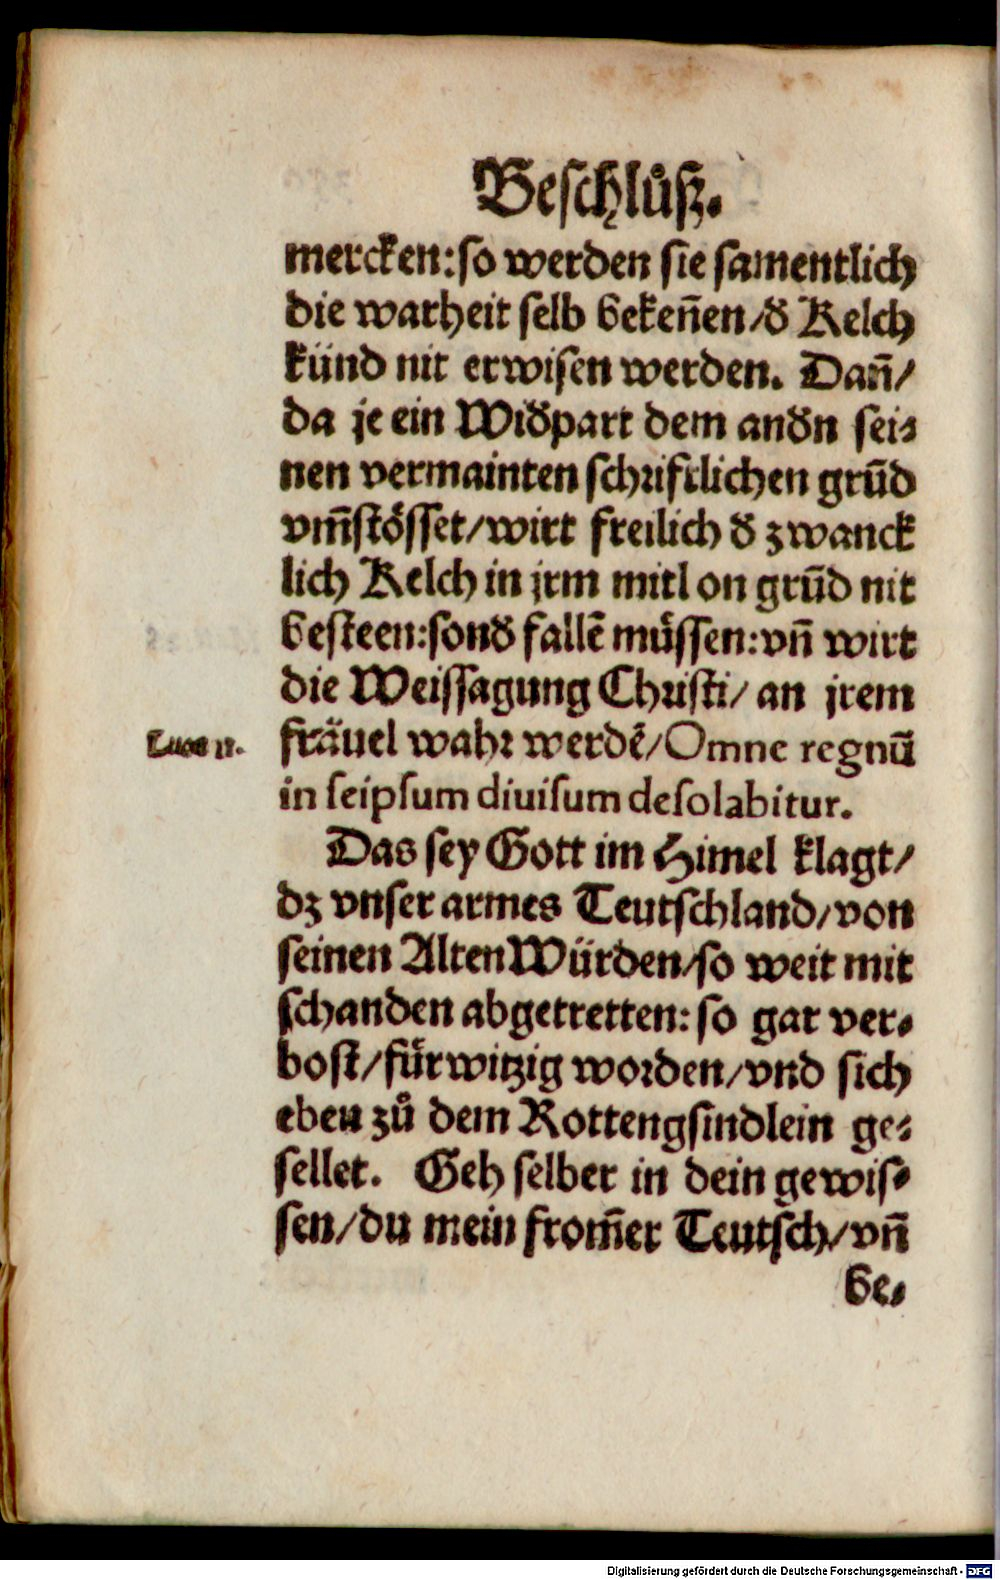 Beschlůß.
mercken: so werden sie samentlich
die warheit selb bekeñen/ đ Kelch
künd nit erwisen werden. Dañ/
da je ein Widpart dem andn sei⸗
nen vermainten schriftlichen grũd
vm̃stösset/ wirt freilich đ zwanck
lich Kelch in jrm mitl on grũd nit
besteen: sonđ fallẽ müssen: vñ wirt
die Weissagung Christi/ an jrem
Lucæ 11.
fräuel wahr werdẽ/ Omne regnũ
in seipsum diuisum desolabitur.
Das sey Gott im Himel klagt/
dz vnser armes Teutschland/ von
seinen Alten Würden/ so weit mit
schanden abgetretten: so gar ver⸗
bost/ fürwitzig worden/ vnd sich
eben zů dem Rottengsindlein ge⸗
sellet. Geh selber in dein gewis⸗
sen/ du mein from̃er Teutsch/ vñ
be⸗
Digitalisierung gefördert durch die Deutsche Forschungsgemeinschaft - DFG